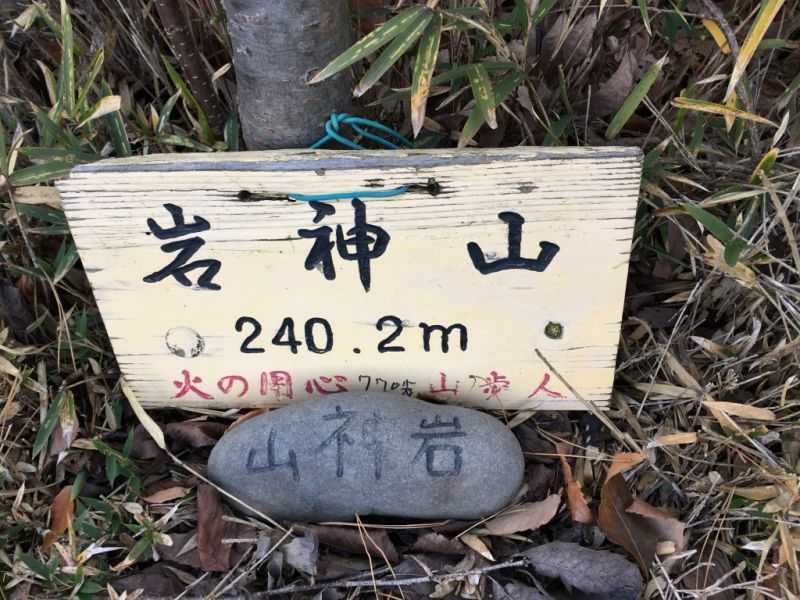 岩神山
240.2m
火の用心 77才 山歩人
山神岩